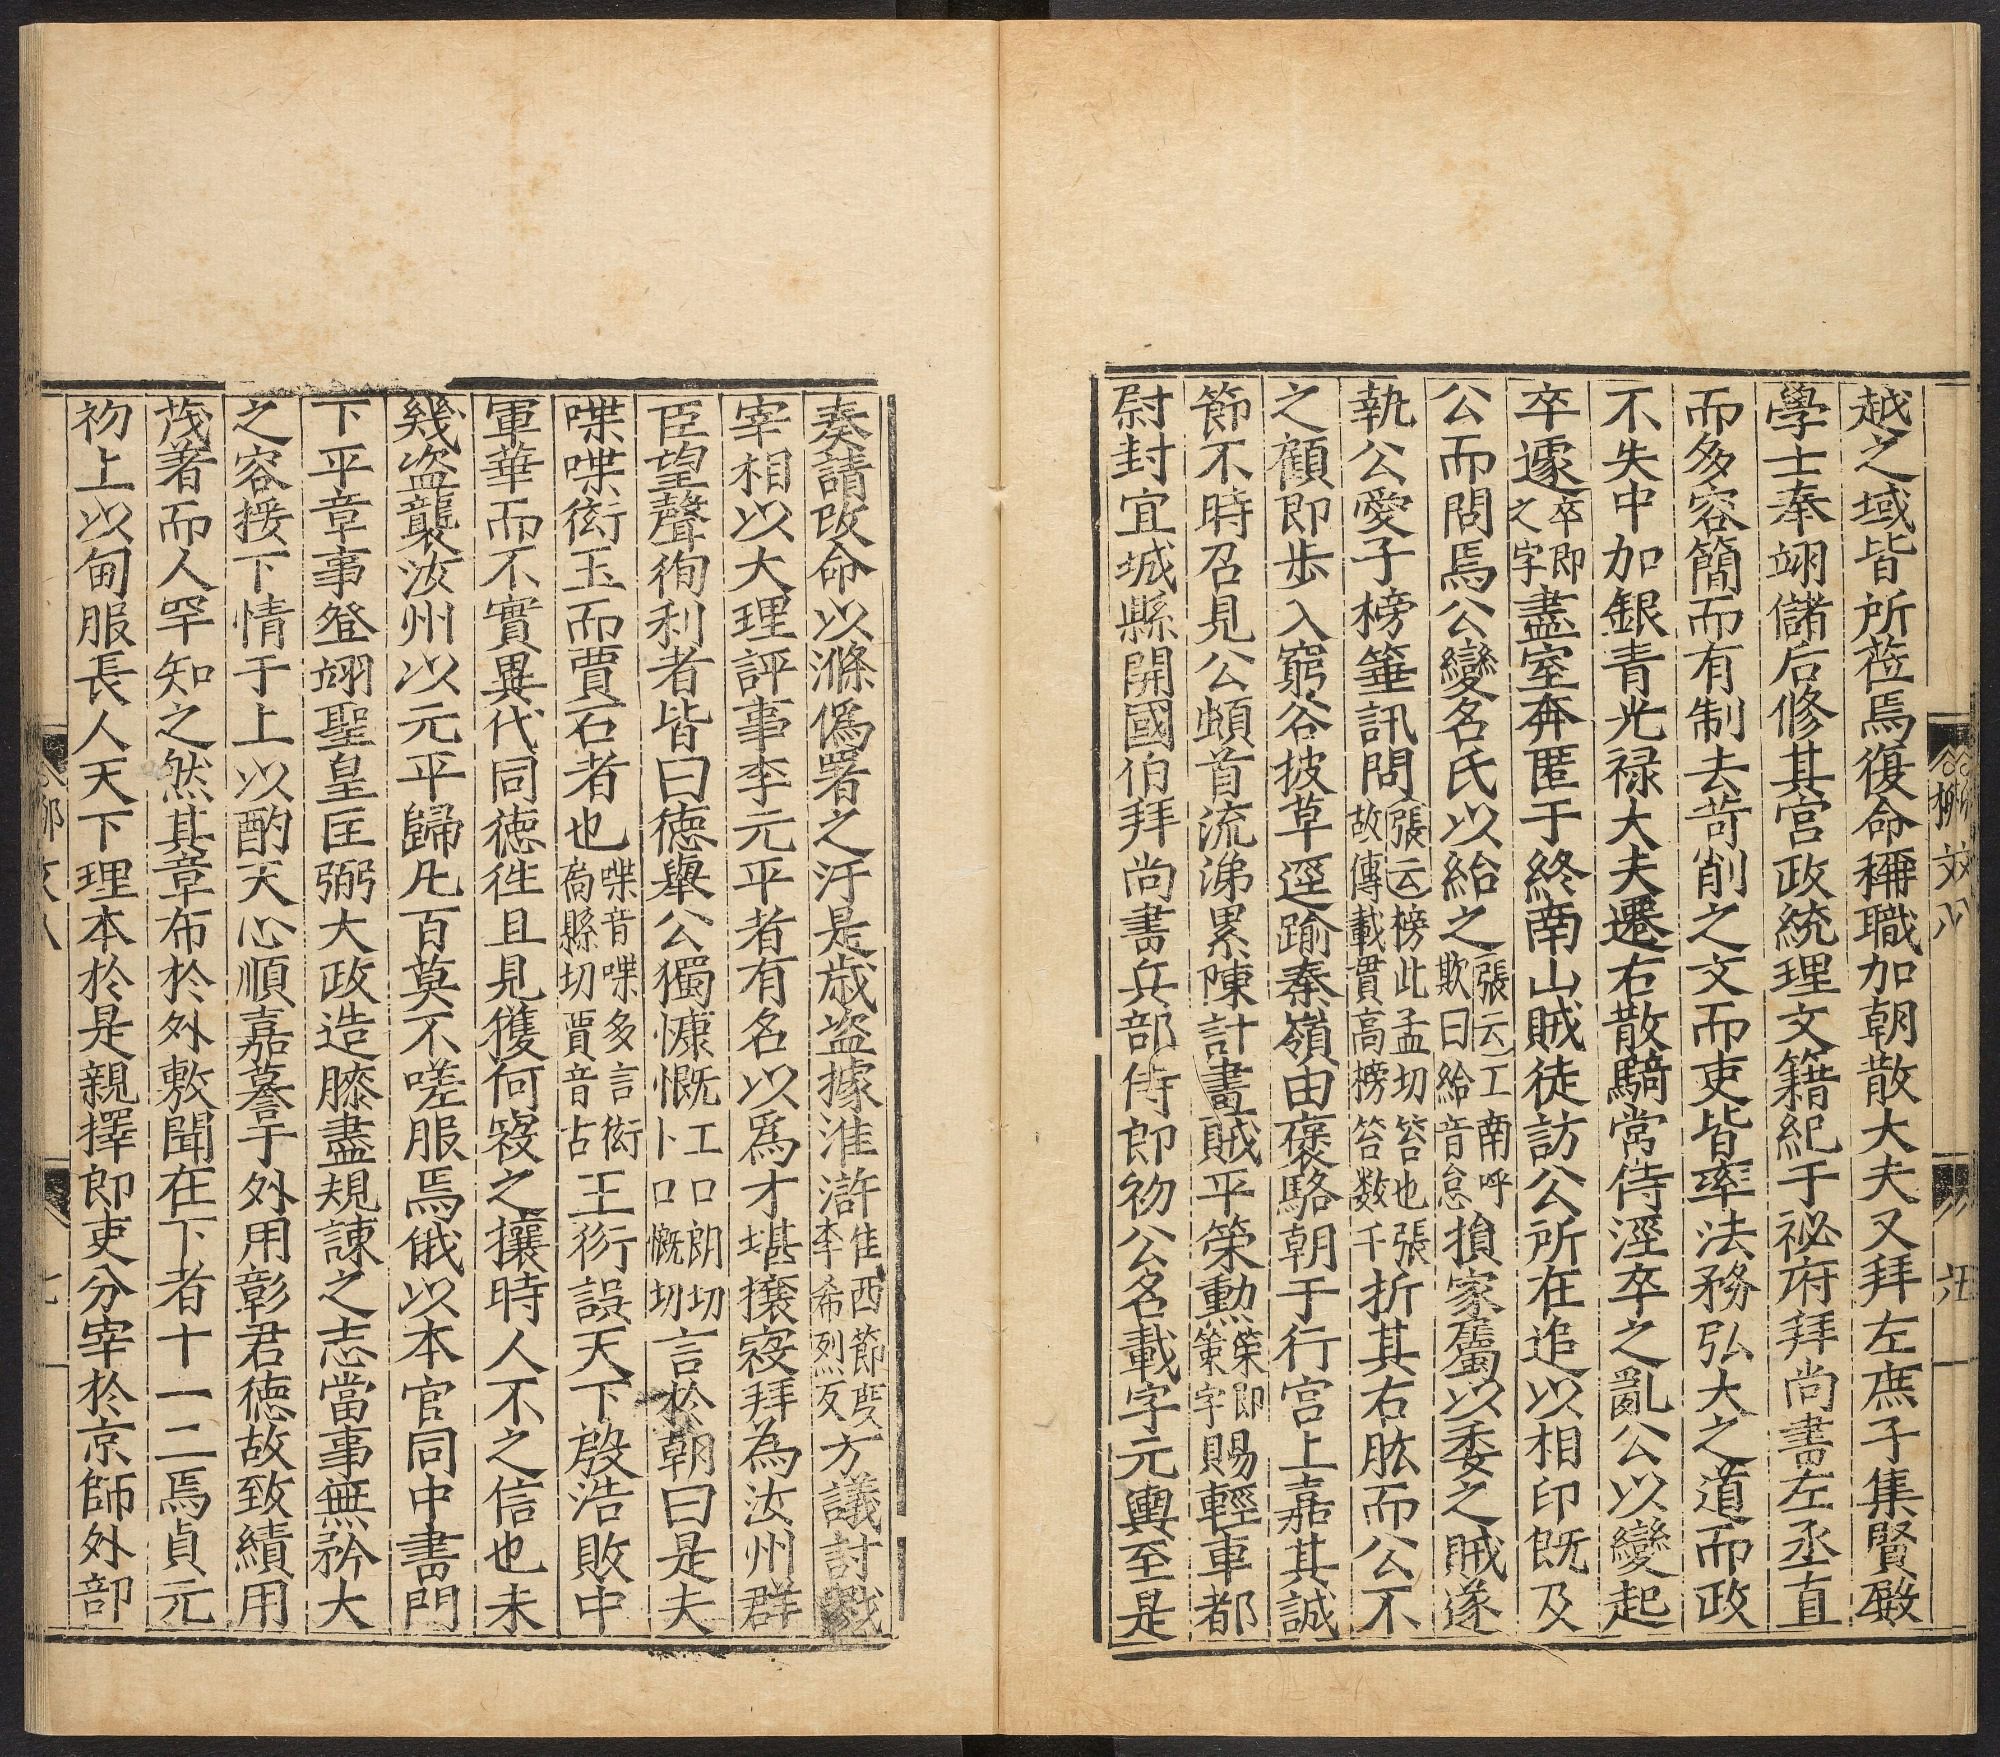 越之域皆所蒞焉復命稱職加朝散大夫又拜左庶子集賢殿
學士奉翊儲后修其宮政統理文籍紀于祕府拜尚書左丞直
而多容簡而有制去苛削之文而吏皆率法務弘大之道而政
不失中加銀青光禄大夫遷右散騎常侍涇卒之亂公以變起
卒遽卒即之字盡室奔匿于終南山賊徒訪公所在追以相印既及
公而問焉公變名氏以紿之張云工南呼欺曰紿音怠損家屬以委之賊遂
執公愛子榜箠訊問張云榜此孟切笞也張故傳載貫高榜笞数千折其右肱而公不
之顧即步入窮谷披草逕踰秦嶺由褒駱朝于行宮上嘉其誠
節不時召見公頓首流涕累陳計畫賊平策勳筞即策字賜輕車都
尉封宜城縣開國伯拜尚書兵部侍郎初公名載字元輿至是
柳文八
奏請改命以滌僞署之汙是歳盗據淮滸淮西節度李希烈反方議討戮
宰相以大理評事李元平者有名以爲才堪攘寇拜為汝州群
臣望聲徇利者皆曰徳舉公獨慷慨工口朗切卜口慨切言於朝曰是夫
喋喋衒玉而賈石者也喋音喋多言衒喬縣切賈音古王衍誤天下殷浩敗中
軍華而不實異代同徳徃且見獲何寇之攘時人不之信也未
幾盗襲汝州以元平歸凡百莫不嗟服焉俄以本官同中書門
下平章事登翊聖皇匡弼大政造膝盡規諫之志當事無矜大
之容接下情于上以酌天心順嘉謩于外用彰君徳故致績用
茂著而人罕知之然其章布於外敷聞在下者十一二焉貞元
初上以甸服長人天下理本於是親擇郎吏分宰於京師外部